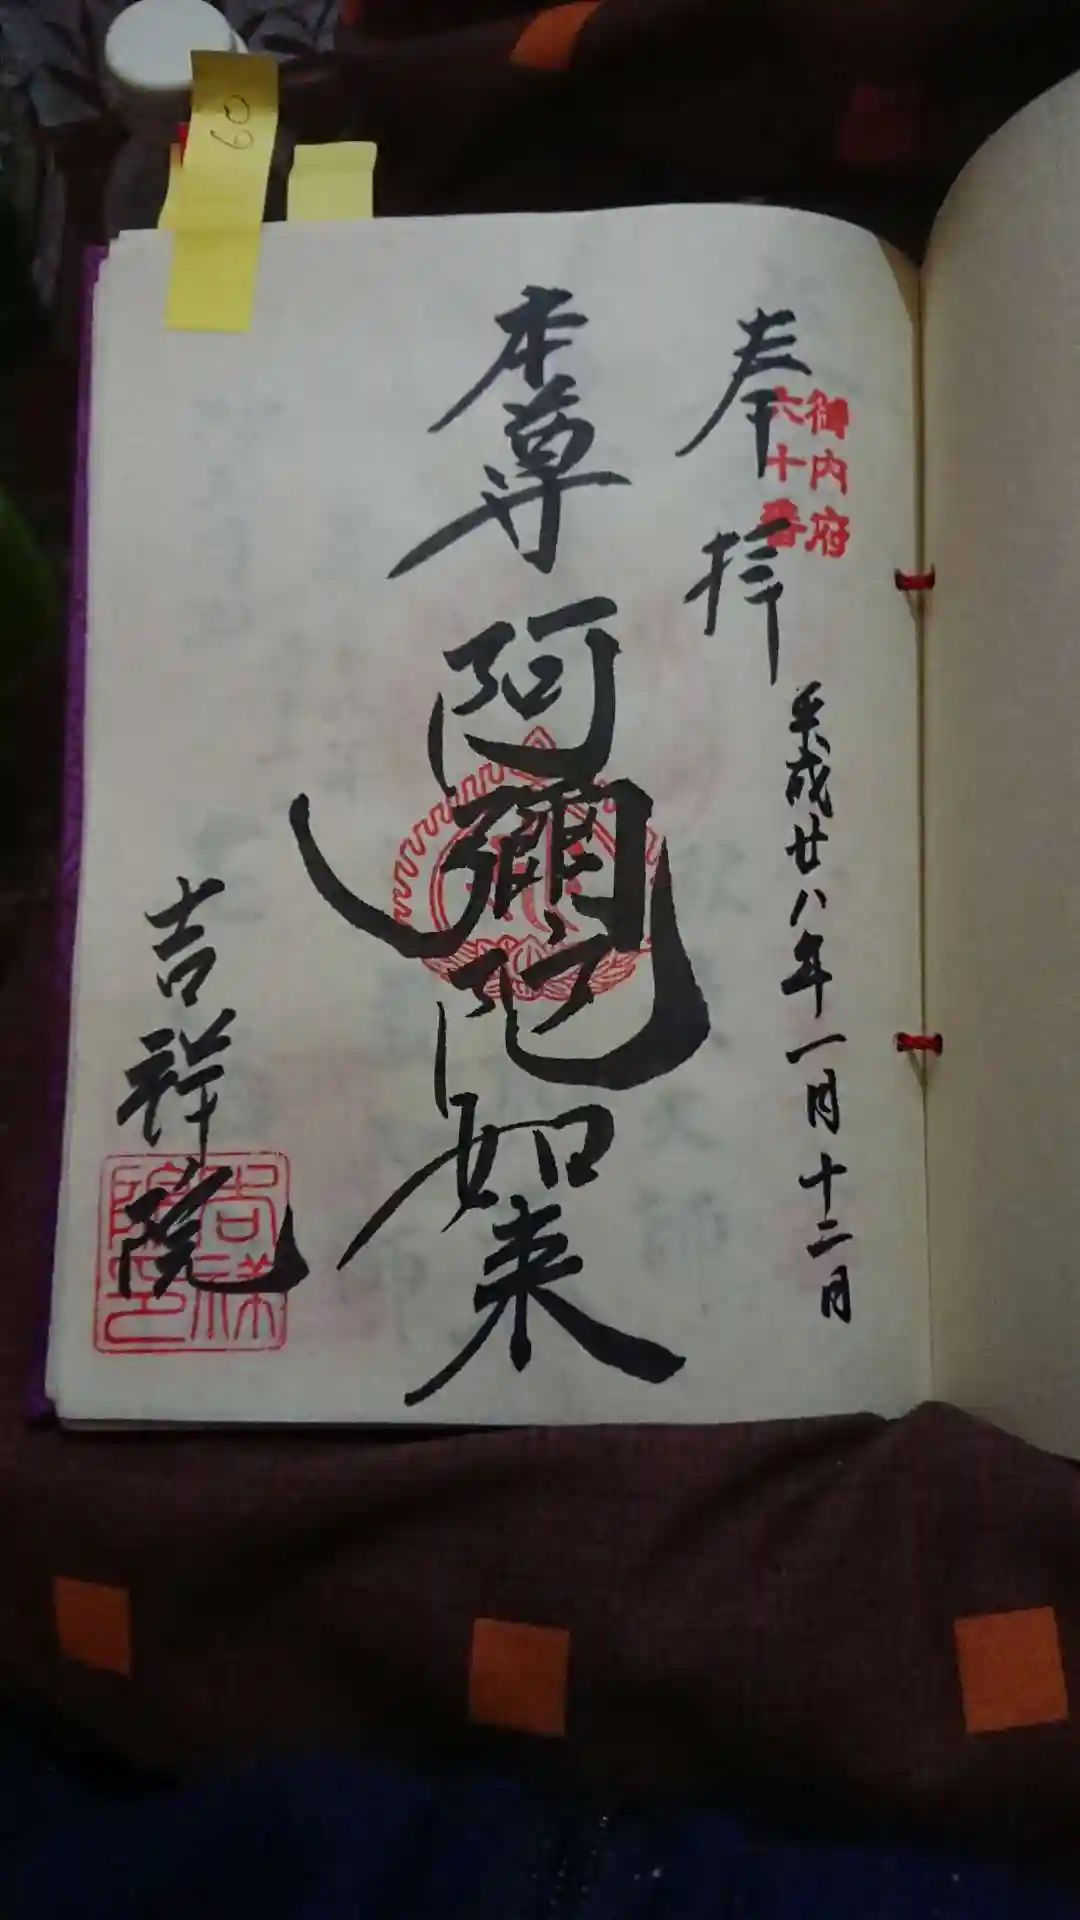 60
御内府
六十番
奉拝
平成廿八年一月十二日
本尊
阿彌陀如来
吉祥院
吉祥院印